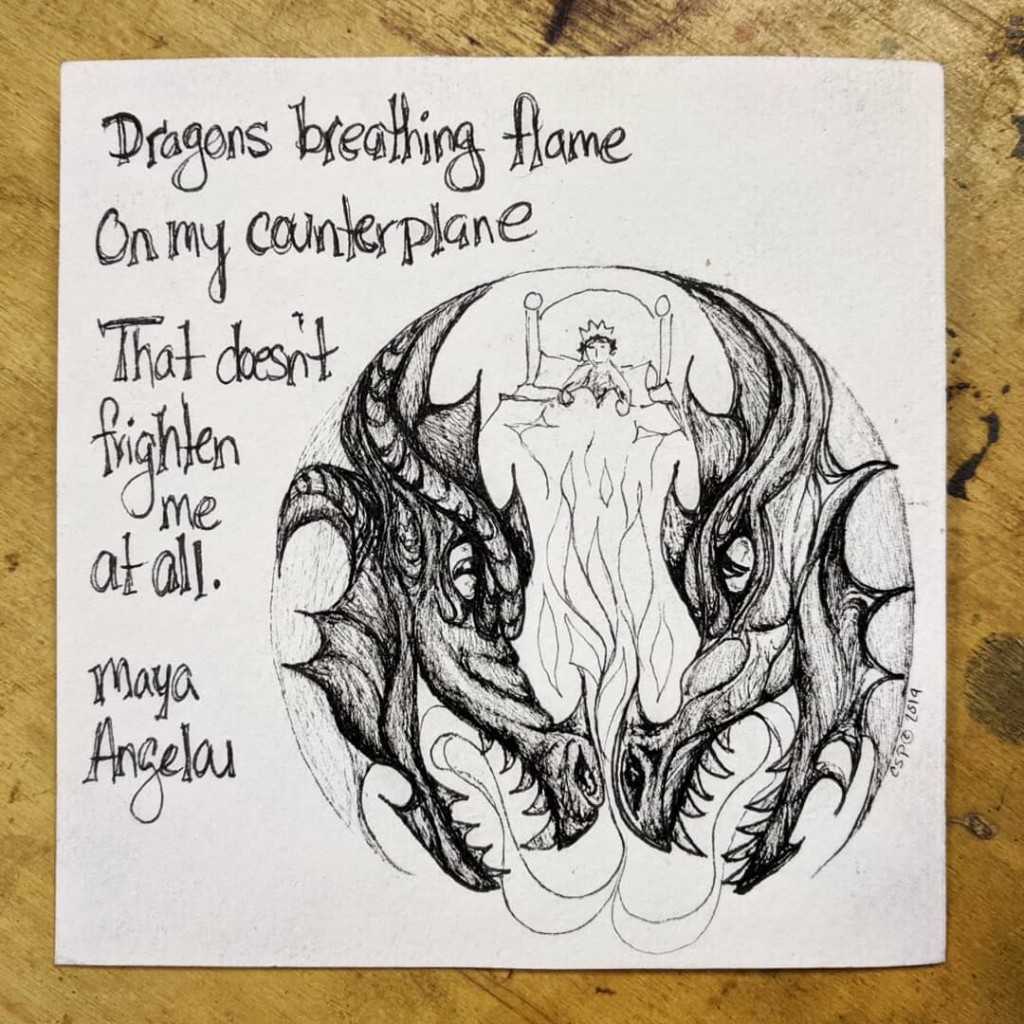 Dragons breathing flame
On my counterplane
That doesn't
frighten
me
at all.
Maya
Angelou
CSP© 2019